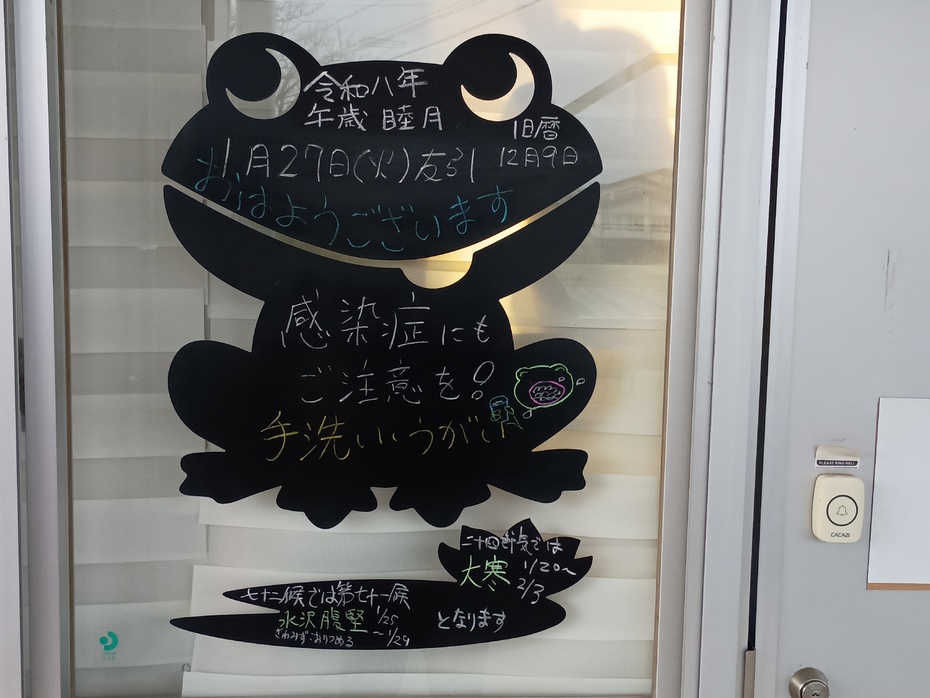 令和八年
午歳 睦月
1月27日(火)友引
旧暦
12月9日
おはようございます
感染症にも
ご注意を!
手洗い、うがい
二十四節気では
大寒 1/20〜
2/3
七十二候では第七十一候
水沢腹堅 1/25
さわみずこおりつめる 〜1/29
となります
PLEASE RING BELL
CACAZI